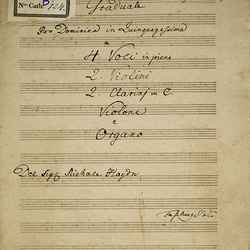 Nro Cath.
Graduale
Pro Dominica in Quinquagesima
a
4. Voci in pieno
2. Violini
2. Clarinj in C.
Violone
e
Organo
Del Sigre Michale Haydn